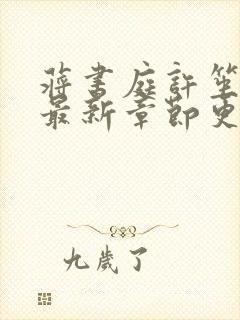 蔣書庭許笙
最新章節更
九歲了